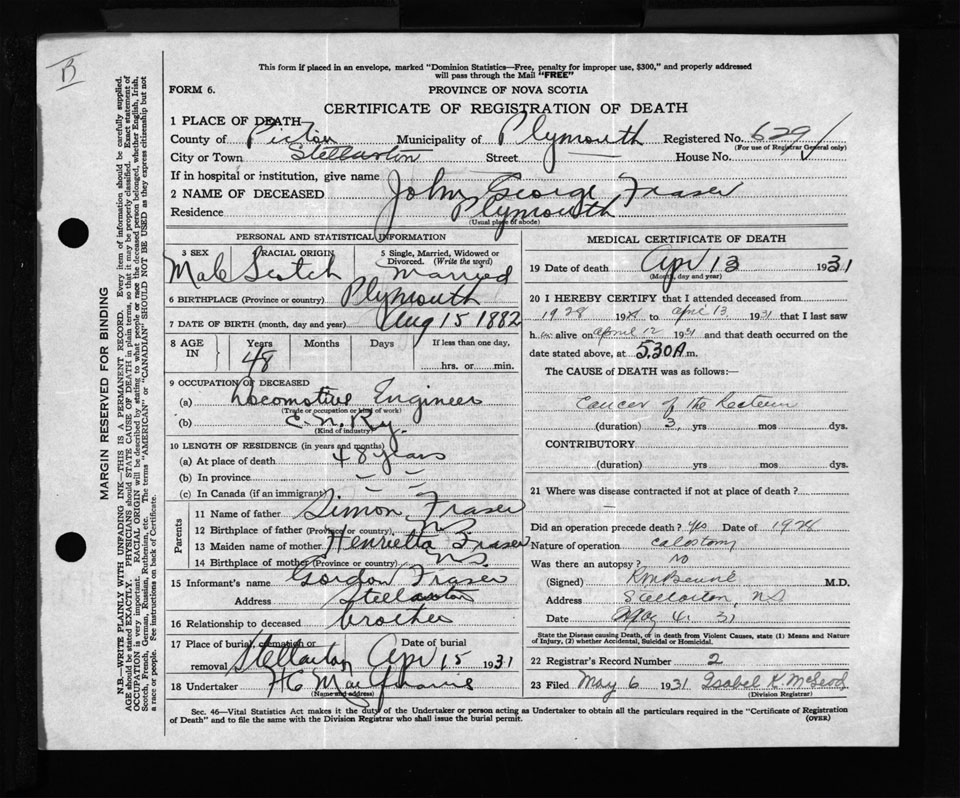 B
This form if placed in an envelope, marked "Dominion Statistics—Free, penalty for improper use, $300," and properly addressed
will pass through the Mail "FREE"
FORM 6.
PROVINCE OF NOVA SCOTIA
CERTIFICATE OF REGISTRATION OF DEATH
1 PLACE OF DEATH
County of Pictou Municipality of Plymouth Registered No. 629
(For use of Registrar General only)
City or Town Stellarton Street House No.
If in hospital or institution, give name
2 NAME OF DECEASED John George Fraser
Residence Plymouth
(Usual place of abode)
PERSONAL AND STATISTICAL INFORMATION
3 SEX RACIAL ORIGIN 5 Single, Married, Widowed or Divorced. (Write the word)
Male Scotch Married
6 BIRTHPLACE (Province or country) Plymouth
7 DATE OF BIRTH (month, day and year) Aug 15 1882
8 AGE IN Years Months Days If less than one day,
48 hrs. or min.
9 OCCUPATION OF DECEASED
(a) Locomotive Engineer
(Trade or occupation or kind of work)
(b) C. N. Ry.
(Kind of industry)
10 LENGTH OF RESIDENCE (in years and months)
(a) At place of death 48 years
(b) In province
(c) In Canada (if an immigrant)
Parents
11 Name of father Simon Fraser
12 Birthplace of father (Province or country) NS
13 Maiden name of mother Henrietta Fraser
14 Birthplace of mother (Province or country) NS
15 Informant's name Gordon Fraser
Address Stellarton
16 Relationship to deceased brother
17 Place of burial, cremation or removal Stellarton Date of burial Apr 15 1931
18 Undertaker H C
(Name and address)
MEDICAL CERTIFICATE OF DEATH
19 Date of death Apr 13 1931
(Month, day and year)
20 I HEREBY CERTIFY that I attended deceased from
1928 19 to April 13 1931 that I last saw
h alive on April 12 1931 and that death occurred on the
date stated above, at 5.30 A m.
The CAUSE of DEATH was as follows:—
Cancer of the Rectum
(duration) 3 yrs mos dys.
CONTRIBUTORY
(duration) yrs mos dys.
21 Where was disease contracted if not at place of death?
Did an operation precede death? yes Date of 1928
Nature of operation colostomy
Was there an autopsy? No
(Signed) M.D.
Address Stellarton, NS
Date May 4. 31
State the Disease causing Death, or in death from Violent Causes, state (1) Means and Nature
of Injury, (2) whether Accidental, Suicidal or Homicidal.
22 Registrar's Record Number 2
23 Filed May 6 1931 Isabel K. McLeod
(Division Registrar)
Sec. 46—Vital Statistics Act makes it the duty of the Undertaker or person acting as Undertaker to obtain all the particulars required in the "Certificate of Registration
of Death" and to file the same with the Division Registrar who shall issue the burial permit.
(OVER)
MARGIN RESERVED FOR BINDING
N.B—WRITE PLAINLY WITH UNFADING INK—THIS IS A PERMANENT RECORD. Every item of information should be carefully supplied.
AGE should be stated EXACTLY. PHYSICIANS should STATE CAUSE OF DEATH in plain terms, so that it may be properly classified. Exact statement of
OCCUPATION is very important. RACIAL ORIGIN will be described by stating to what people or race the deceased person belonged, whether English, Irish,
Scotch, French, German, Russian, Ruthenian, etc. The terms "AMERICAN" or "CANADIAN" SHOULD NOT BE USED as they express citizenship but not
a race or people. See instructions on back of Certificate.